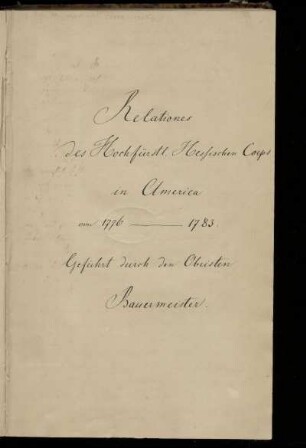 Relationes
des Hochfürstl. Hessischen Corps
in America
von 1776 — 1783.
Geführt durch den Obristen
Bauermeister.